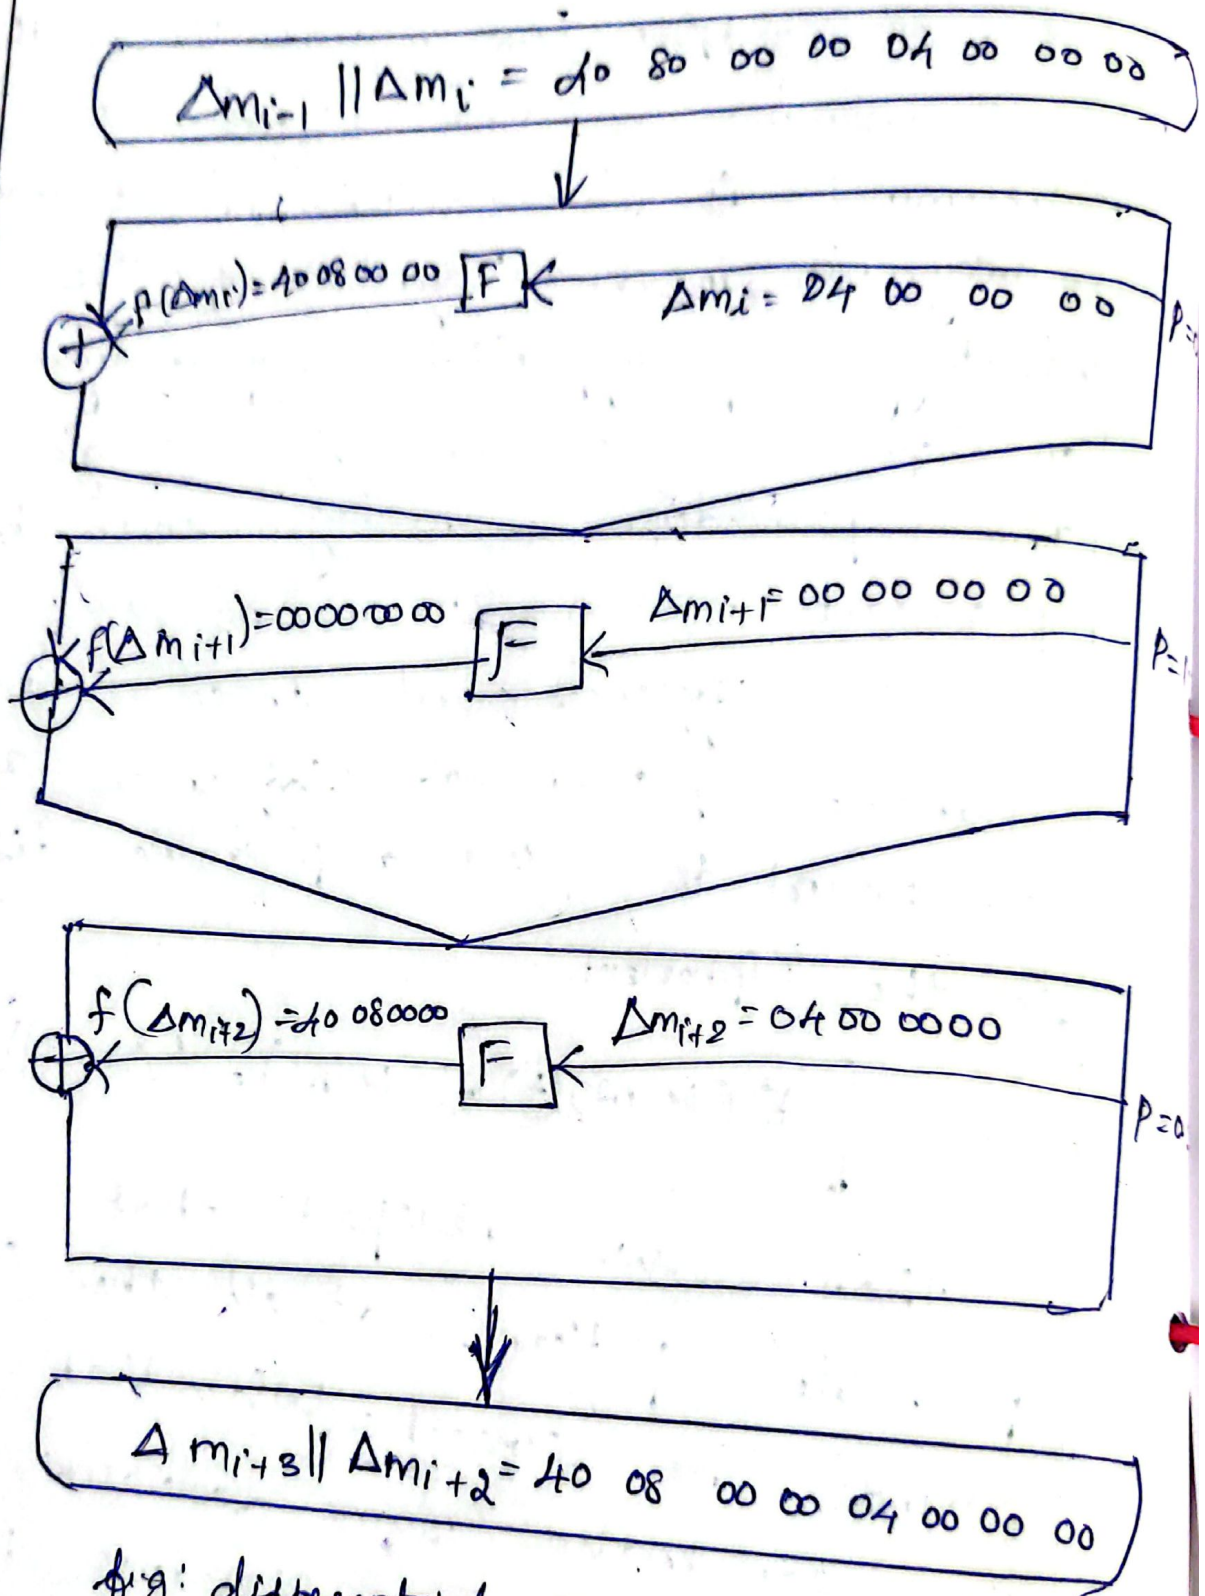 Δmi-1 || Δmi = 40 80 00 00 04 00 00 00
f(Δmi) = 40 08 00 00 F
Δmi = 04 00 00 00
P=
+
f(Δmi+1) = 00 00 00 00 F
Δmi+1 = 00 00 00 00
P=1
f(Δmi+2) = 40 080000 F
Δmi+2 = 04 00 0000
P=0
Δmi+3 || Δmi+2 = 40 08 00 00 04 00 00 00
fig: